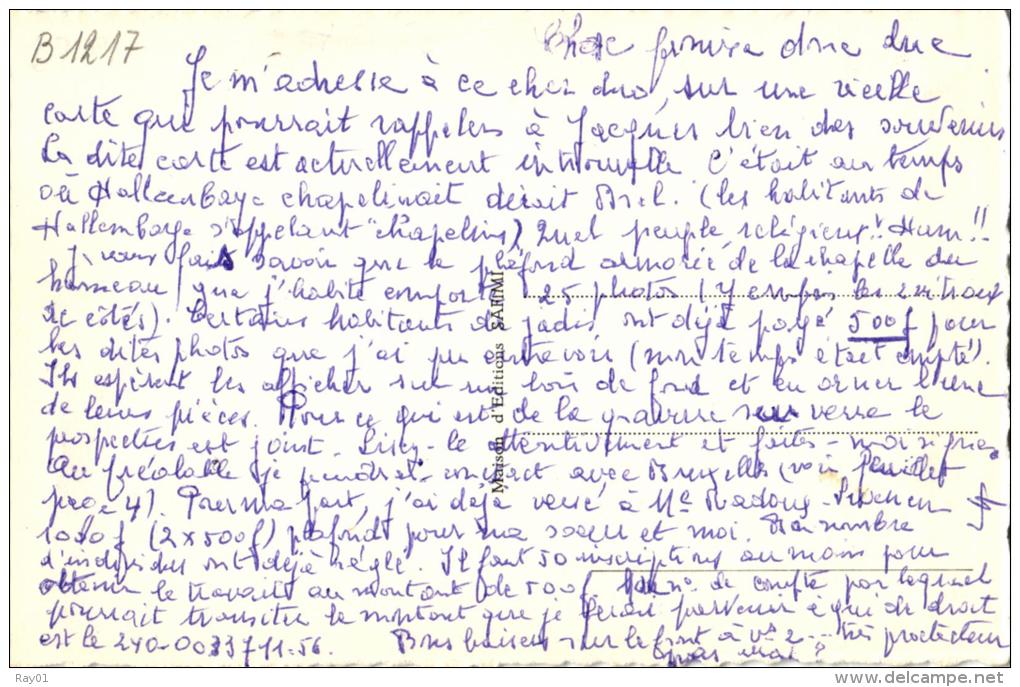 B1217
Je m'adresse à ce cher duo, sur une vieille
carte qui pourrait rappeler à Jacques bien des souvenirs
La dite carte est actuellement introuvable. C'était au temps
où Hallembaye chapelinait disait Brel. (les habitants de
Hallembaye s'appelant "chapelins") Quel peuple religieux! Hum!!
J' vous fais savoir que le plafond armorié de la chapelle du
hameau que j'habite comporte 25 photos (
de côtés). Certains habitants de jadis ont déjà payé 500f pour
les dites photos que j'ai pu entrevoir (mon temps était compté).
Ils espèrent les afficher sur un bois de fond et en orner l'une
de leurs pièces. Pour ce qui est de la gravure sur verre le
prospectus est joint. Lisez-le attentivement et faites-moi signe.
Au préalable je prendrai contact avec Bruxelles (voir feuillet
page 4). Pour ma part, j'ai déjà versé à Me
1000f (2x500f) plafond pour ma sœur et moi. Bon nombre
d'individus ont déjà réglé. Il faut 50 inscriptions au moins pour
obtenir le travail au montant de 500f n° de compte par lequel
pourrait transiter le montant que je ferai parvenir à qui de droit
est le 240-0033711-56. Bons baisers sur le front à vs 2 très protecteur
Maison d'Editions SAFIMI
Ray01
delcampe.net